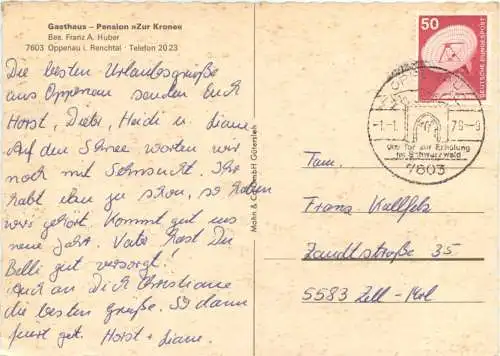 Gasthaus – Pension »Zur Krone«
Bes. Franz A. Huber
7603 Oppenau i. Renchtal · Telefon 2023
Die besten Urlaubsgrüße
aus Oppenau senden Euch
Horst, Heidi u. Liane.
Auf den Schnee warten wir
noch mit Sehnsucht. Ihr
habt ihn zu schon, so haben
wir gehört. Kommt gut ins
neue Jahr. Vater hast Du
Belli gut versorgt!
Auch an Dich Christiane
die besten Grüße. So dann
feiert gut. Horst + Liane.
Mohn & Co GmbH Gütersloh
50
DEUTSCHE BUNDESPOST
-1.-1. 79-9
das Tor zur Erholung
im Schwarzwald
7603
Fam.
Franz Kullfelz
Zandtstraße 35
5583 Zell-Kel